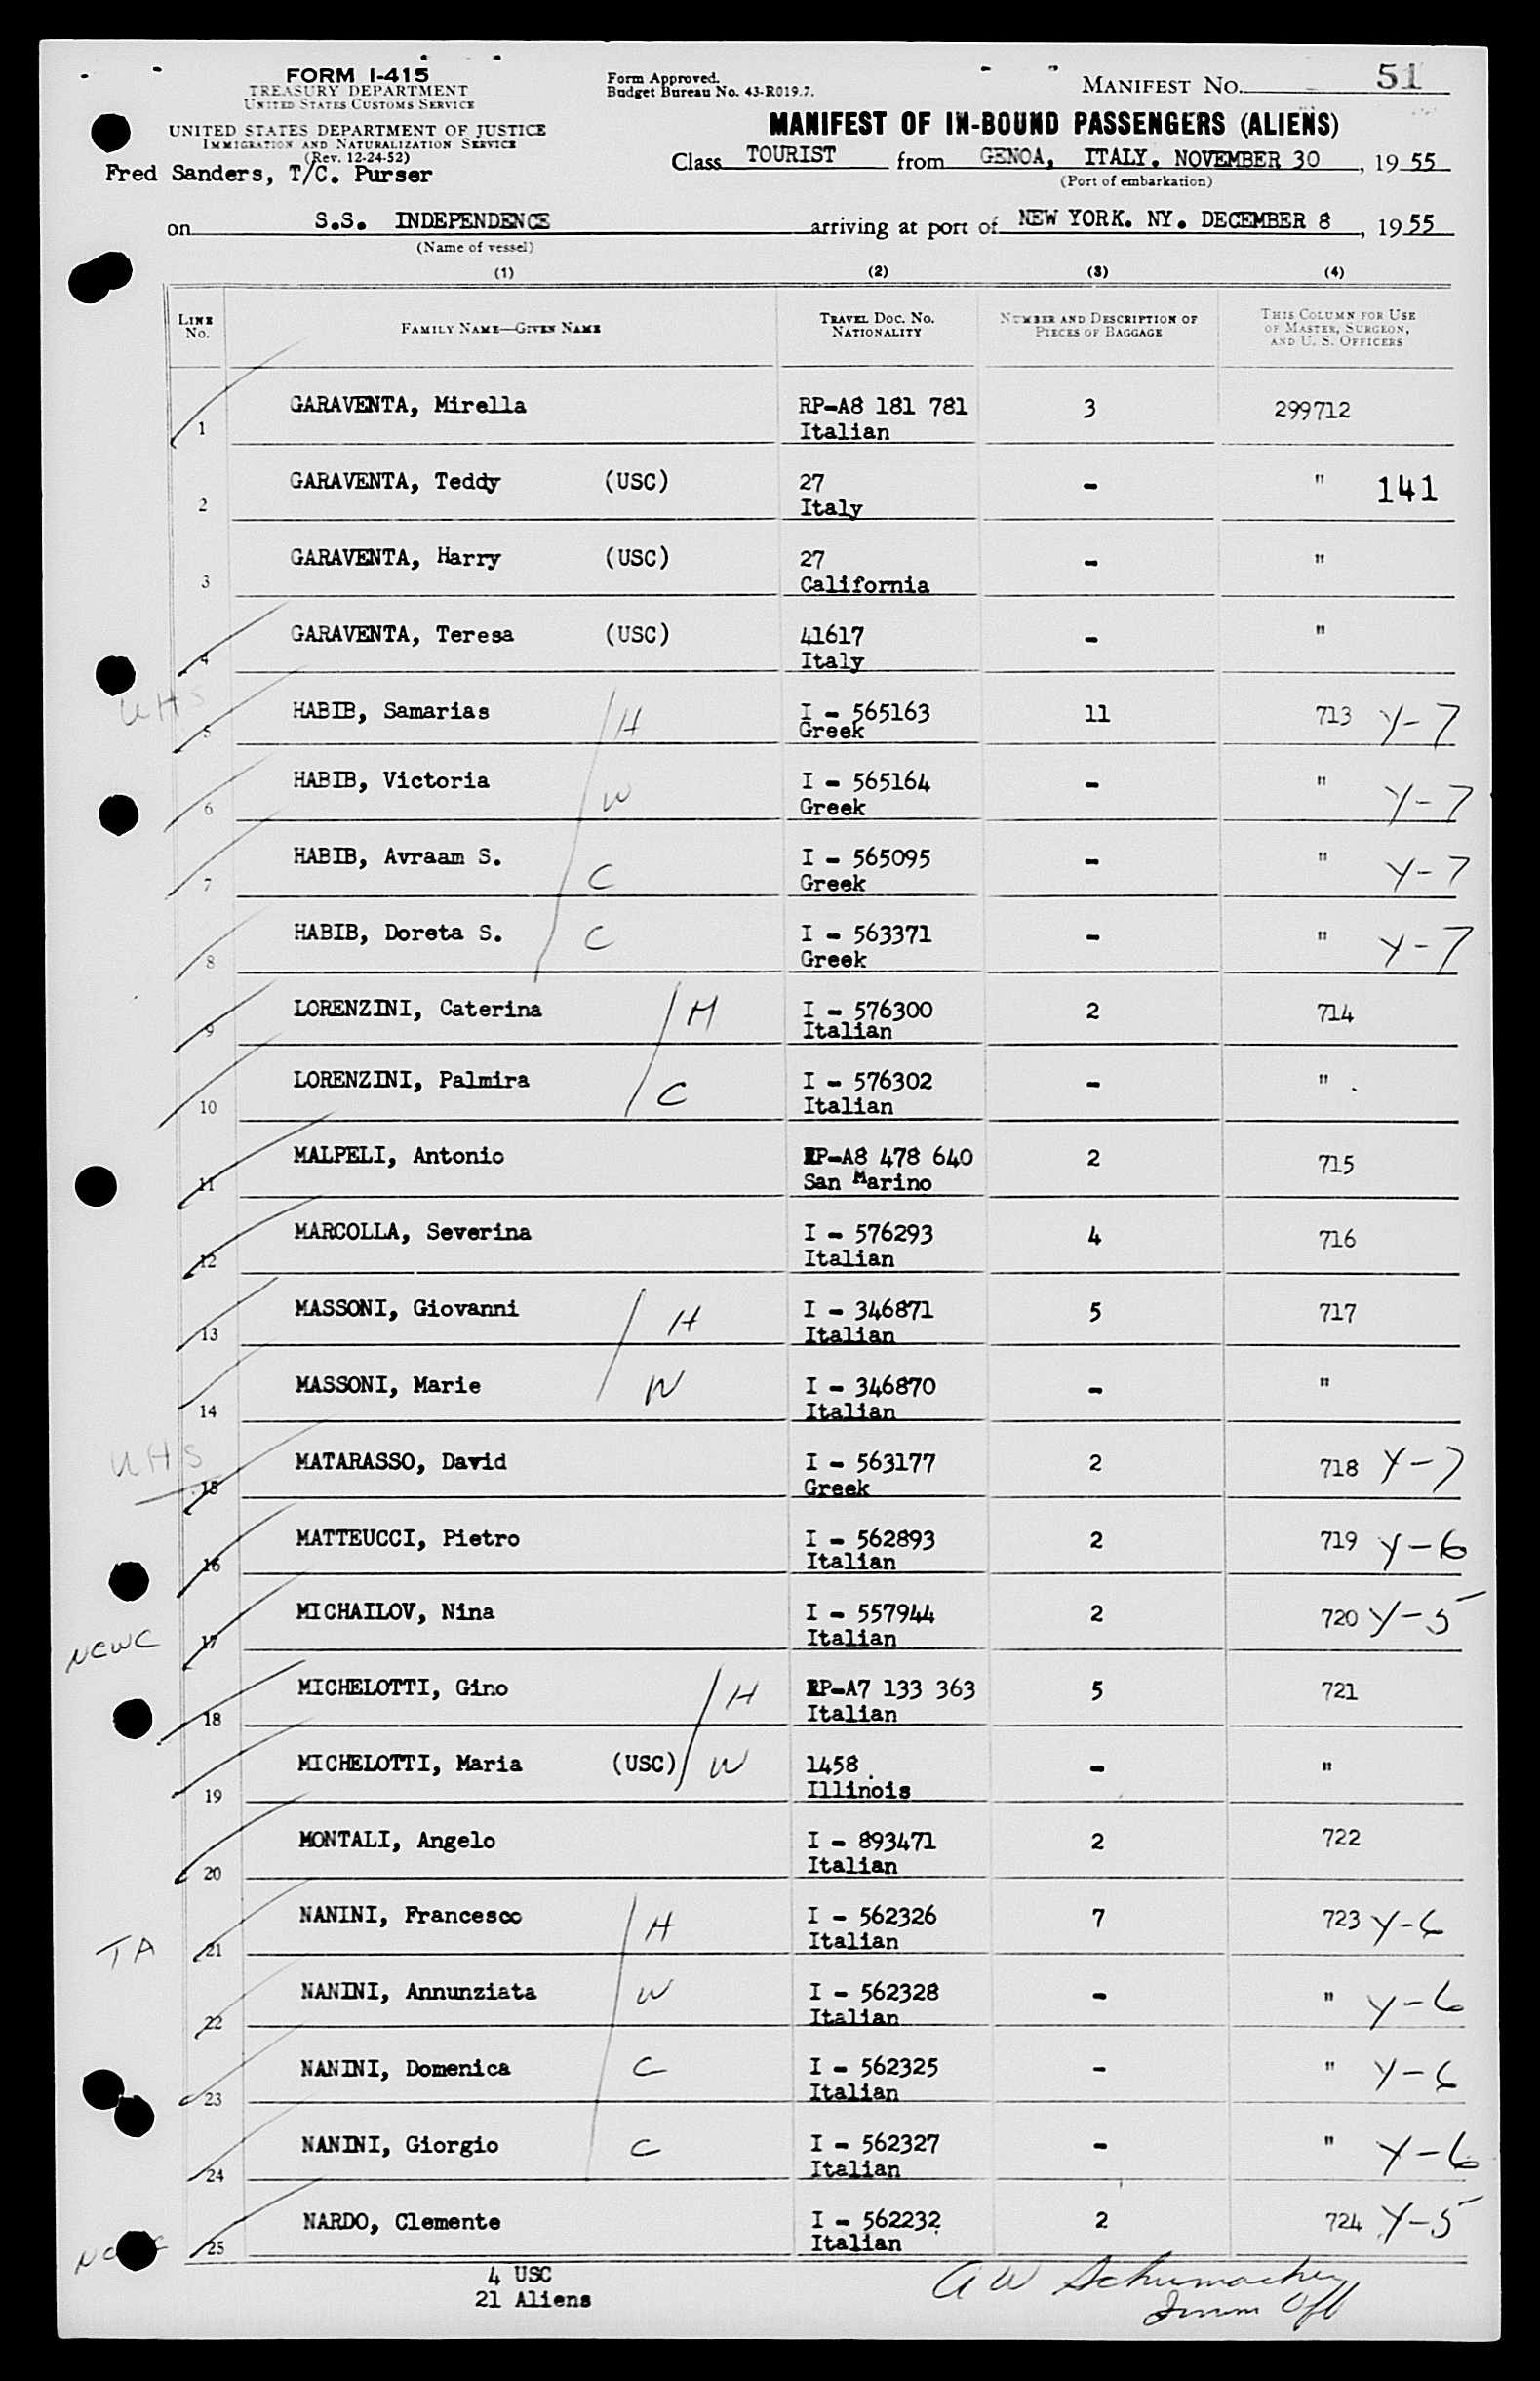 FORM I-415
TREASURY DEPARTMENT
UNITED STATES CUSTOMS SERVICE
UNITED STATES DEPARTMENT OF JUSTICE
IMMIGRATION AND NATURALIZATION SERVICE
(Rev. 12-24-52)
Fred Sanders, T/C. Purser
Form Approved.
Budget Bureau No. 43-R019.7.
MANIFEST NO. 51
MANIFEST OF IN-BOUND PASSENGERS (ALIENS)
Class TOURIST from GENOA, ITALY. NOVEMBER 30, 1955
(Port of embarkation)
on S.S. INDEPENDENCE arriving at port of NEW YORK. NY. DECEMBER 8, 1955
(Name of vessel)
(1) (2) (3) (4)
LINE No. FAMILY NAME—GIVEN NAME TRAVEL DOC. NO. NATIONALITY NUMBER AND DESCRIPTION OF PIECES OF BAGGAGE THIS COLUMN FOR USE OF MASTER, SURGEON, AND U. S. OFFICERS
1 GARAVENTA, Mirella RP-A8 181 781 3 299712
Italian
2 GARAVENTA, Teddy (USC) 27 - " 141
Italy
3 GARAVENTA, Harry (USC) 27 - "
California
4 GARAVENTA, Teresa (USC) 41617 - "
Italy
UHS
5 HABIB, Samarias H I - 565163 11 713 Y-7
Greek
6 HABIB, Victoria W I - 565164 - " Y-7
Greek
7 HABIB, Avraam S. C I - 565095 - " Y-7
Greek
8 HABIB, Doreta S. C I - 563371 - " Y-7
Greek
9 LORENZINI, Caterina M I - 576300 2 714
Italian
10 LORENZINI, Palmira C I - 576302 - "
Italian
11 MALPELI, Antonio RP-A8 478 640 2 715
San Marino
12 MARCOLLA, Severina I - 576293 4 716
Italian
13 MASSONI, Giovanni H I - 346871 5 717
Italian
14 MASSONI, Marie W I - 346870 - "
Italian
UHS
15 MATARASSO, David I - 563177 2 718 Y-7
Greek
16 MATTEUCCI, Pietro I - 562893 2 719 Y-6
Italian
NCWC 17 MICHAILOV, Nina I - 557944 2 720 Y-5
Italian
18 MICHELOTTI, Gino H RP-A7 133 363 5 721
Italian
19 MICHELOTTI, Maria (USC) W 1458 - "
Illinois
20 MONTALI, Angelo I - 893471 2 722
Italian
TA 21 NANINI, Francesco H I - 562326 7 723 Y-6
Italian
22 NANINI, Annunziata W I - 562328 - " Y-6
Italian
23 NANINI, Domenica C I - 562325 - " Y-6
Italian
24 NANINI, Giorgio C I - 562327 - " Y-6
Italian
25 NARDO, Clemente I - 562232 2 724 Y-5
Italian
4 USC
21 Aliens
A W Schumacher
Imm Off